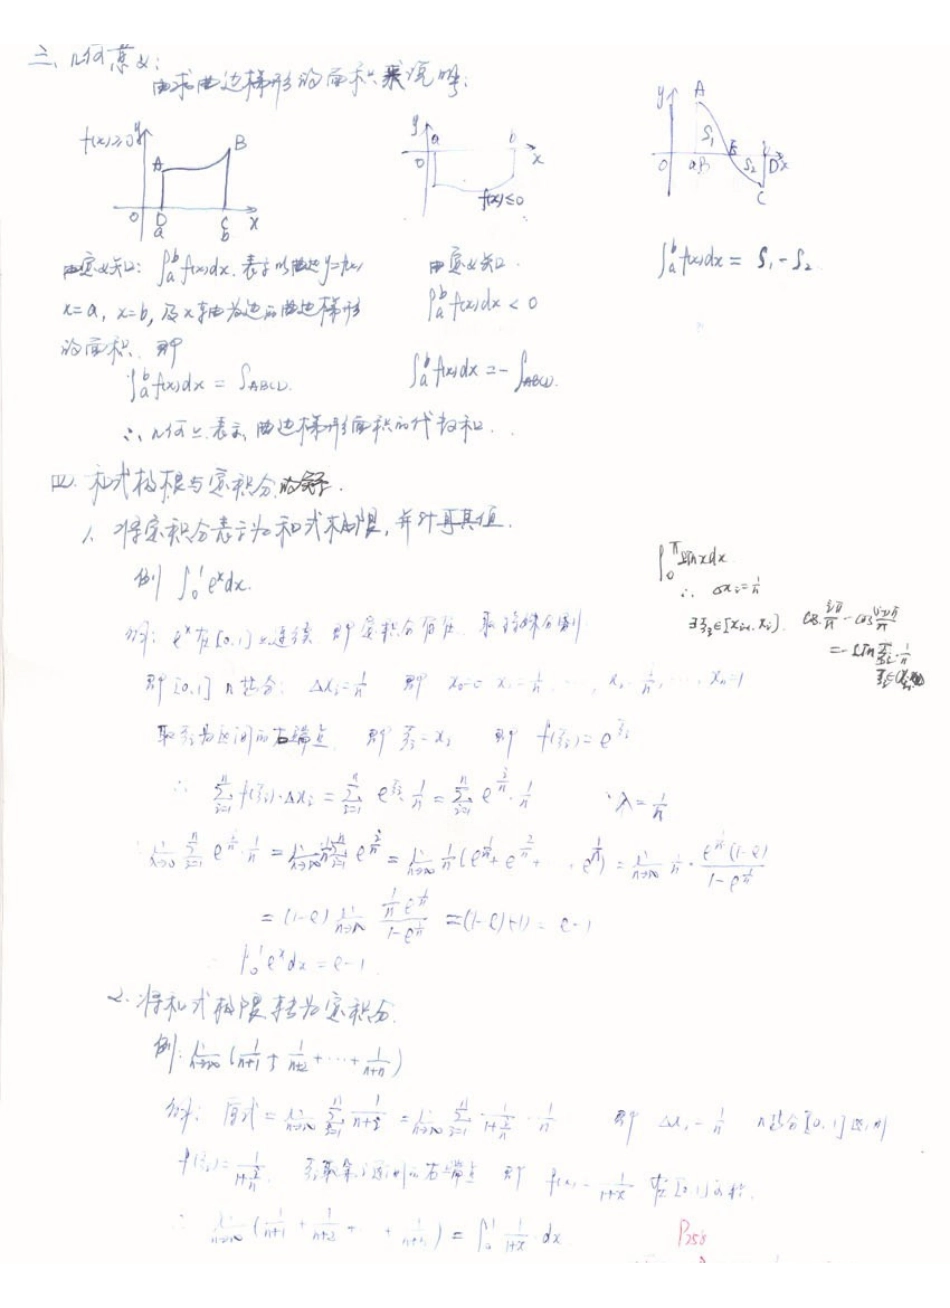 三、几何意义:
由求曲边梯形的面积来说明:
f(x)≥0 y A B O D C x a b
y a b O x f(x)≤0
y A S₁ O a B E S₂ b D x C
由定义知: ∫ₐᵇ f(x)dx 表示以曲边y=f(x)
x=a, x=b, 及x轴为边的曲边梯形
的面积. 即
∫ₐᵇ f(x)dx = S_ABCD.
由定义知.
∫ₐᵇ f(x)dx < 0
∫ₐᵇ f(x)dx = - S_ABCD.
∫ₐᵇ f(x)dx = S₁ - S₂
∴ 几何上表示曲边梯形面积的代数和.
四. 和式极限与定积分
1. 将定积分表示为和式极限, 并计算其值.
例 ∫₀¹ eˣdx.
∫₀^π sinxdx
∴ Δxᵢ=1/n
∃ξᵢ∈[xᵢ₋₁, xᵢ].
解: eˣ在[0,1]上连续 即定积分存在. 取特殊分割
即[0,1] n等分: Δxᵢ=1/n 即 x₀=0 x₁=1/n, …, xᵢ=i/n, … xₙ=1
取ξᵢ为区间的右端点 即 ξᵢ=xᵢ 即 f(ξᵢ)=e^ξᵢ
∴ Σᵢ₌₁ⁿ f(ξᵢ)·Δxᵢ = Σᵢ₌₁ⁿ e^ξᵢ · 1/n = Σᵢ₌₁ⁿ e^(i/n) · 1/n ∵ λ=1/n
lim λ→0 Σᵢ₌₁ⁿ e^(i/n) · 1/n = lim n→∞ 1/n Σᵢ₌₁ⁿ e^(i/n) = lim n→∞ 1/n (e^(1/n) + e^(2/n) + … e^(n/n)) = lim n→∞ 1/n · e^(1/n)(1-e)/(1-e^(1/n))
= (1-e) lim n→∞ (1/n e^(1/n))/(1-e^(1/n)) = (1-e)(-1) = e-1
∫₀¹ eˣdx = e-1.
2. 将和式极限转为定积分.
例: lim n→∞ (1/(n+1) + 1/(n+2) + … + 1/(n+n))
解: 原式 = lim n→∞ Σᵢ₌₁ⁿ 1/(n+i) = lim n→∞ Σᵢ₌₁ⁿ 1/(1+i/n) · 1/n 即 Δxᵢ=1/n n等分[0,1]区间
f(ξᵢ)= 1/(1+i/n). ξᵢ取第i区间的右端点 即 f(x)= 1/(1+x) 在[0,1]
∴ lim n→∞ (1/(n+1) + 1/(n+2) + … + 1/(n+n)) = ∫₀¹ 1/(1+x) dx
P258